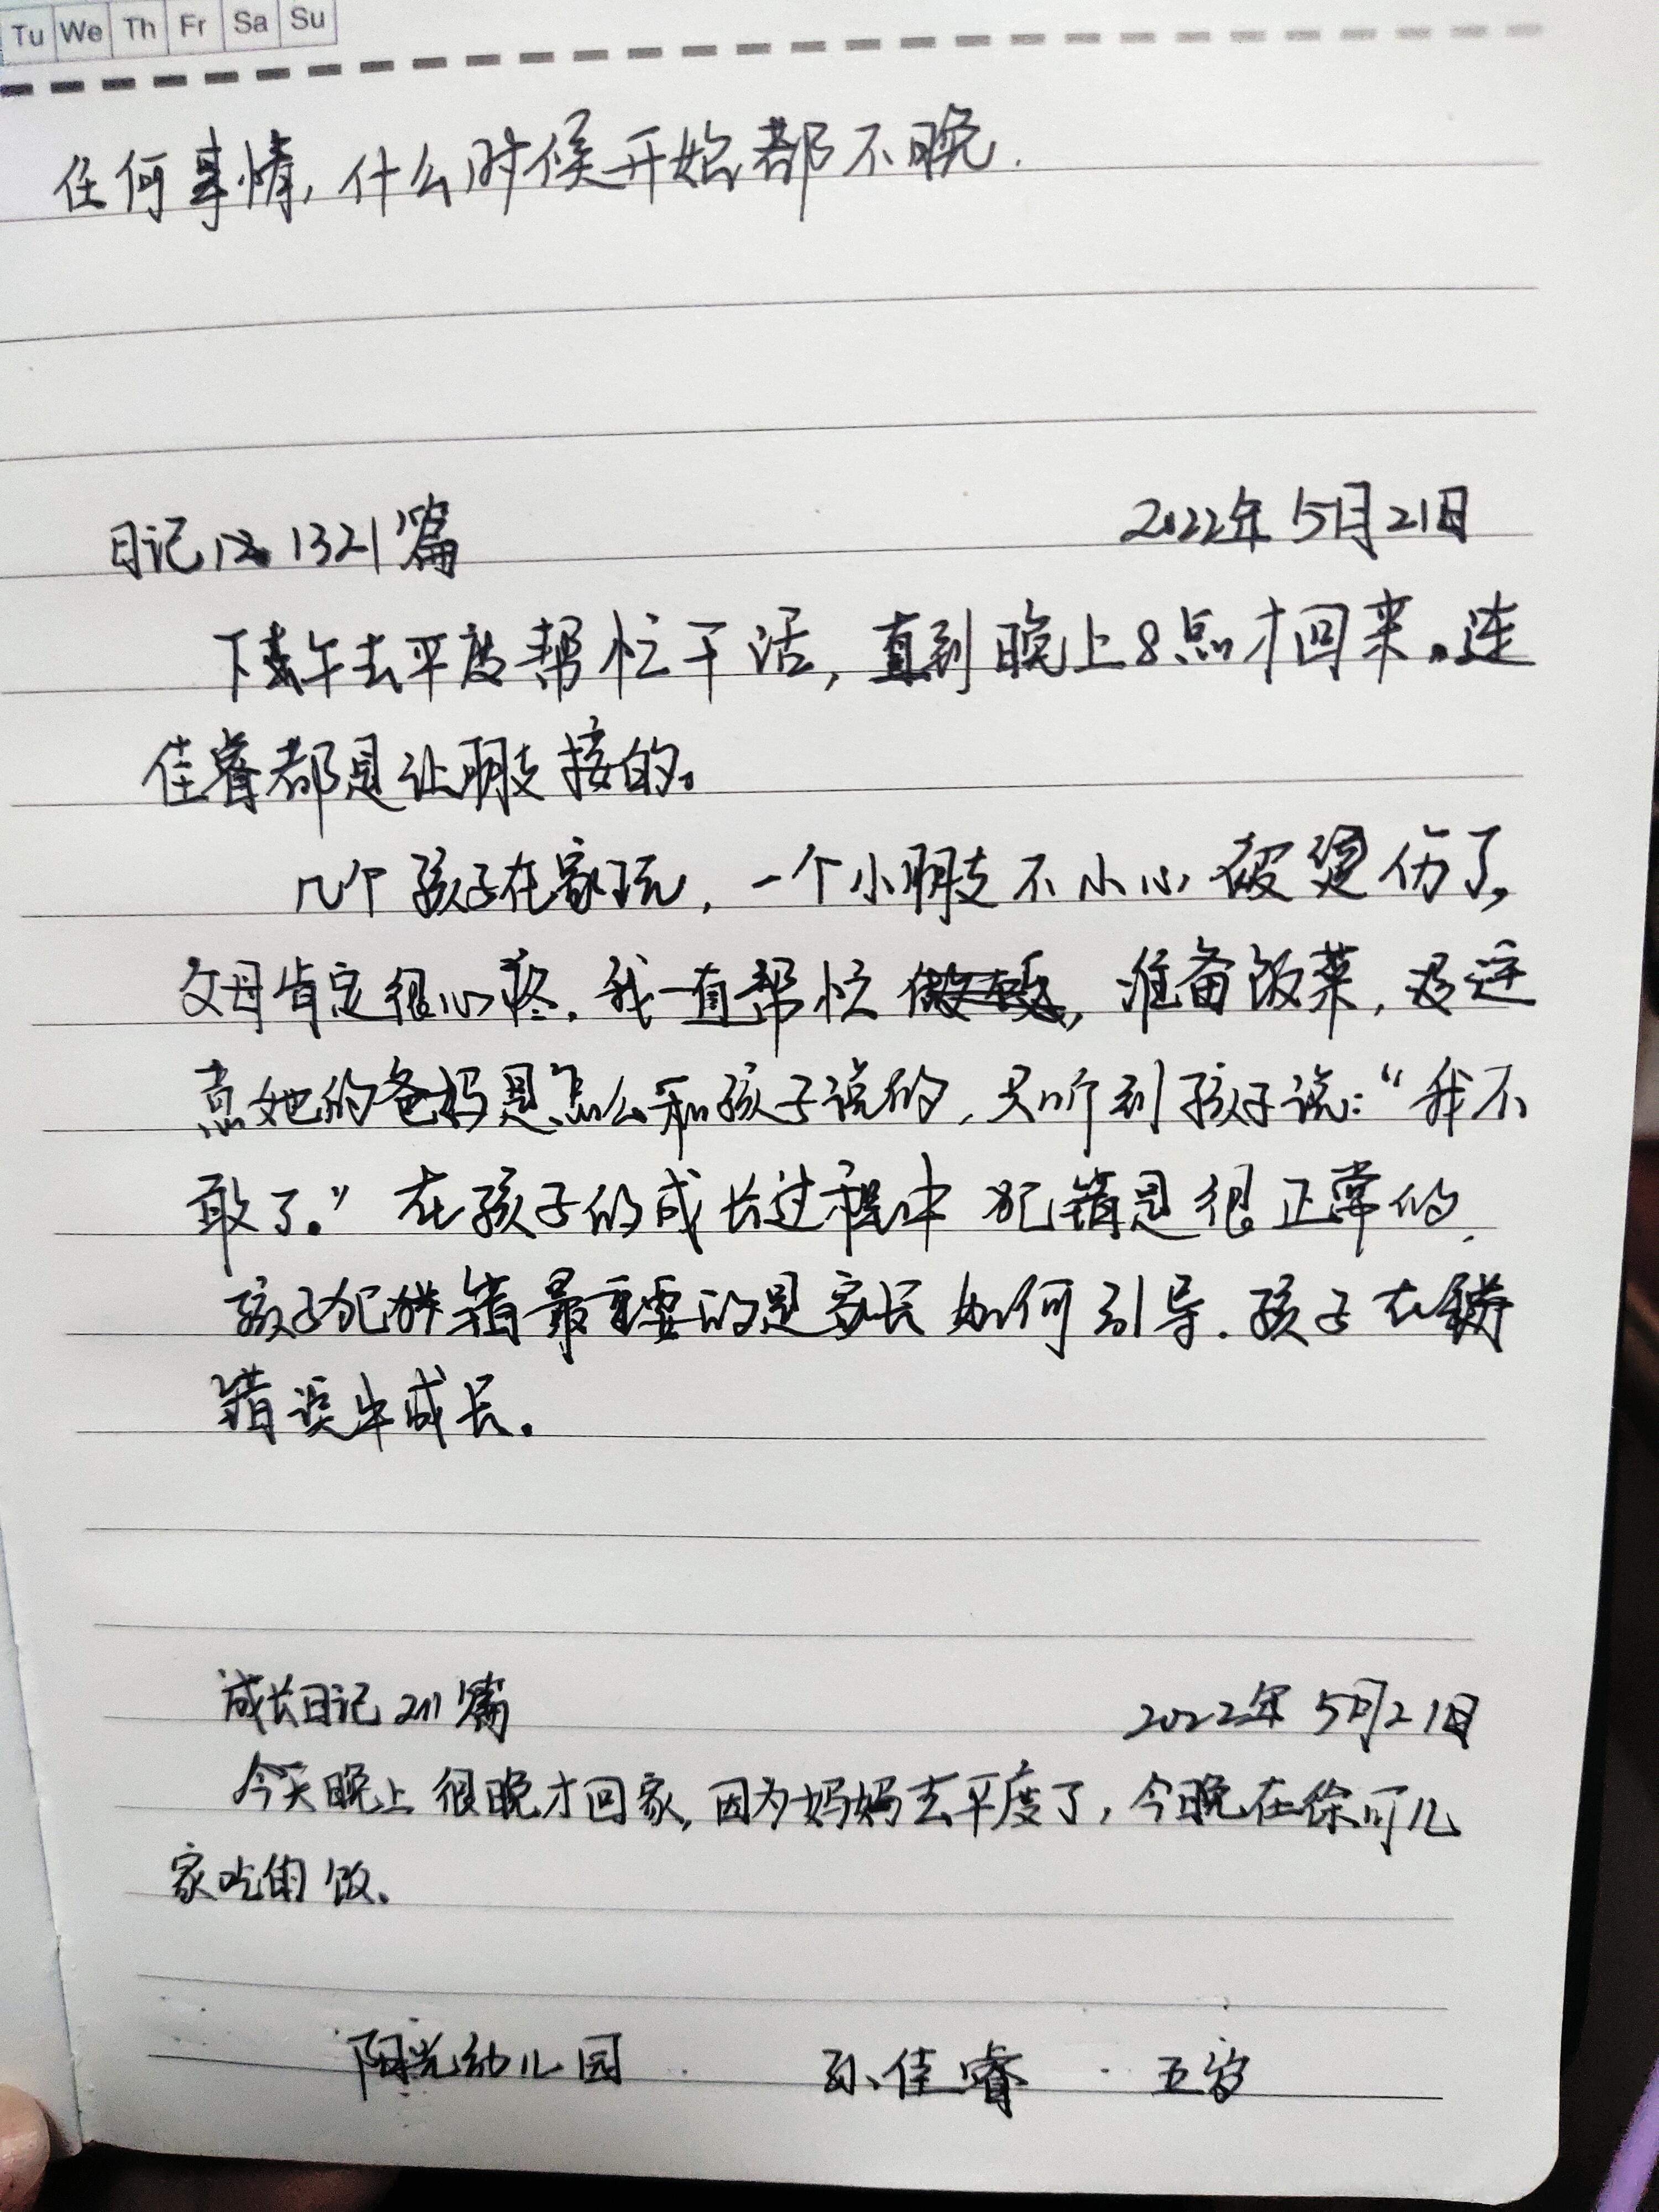 Tu We Th Fr Sa Su
任何事情,什么时候开始都不晚.
日记 1321篇
2022年5月21日
下午去平度帮忙干活,直到晚上8点才回来。连
佳睿都是让朋友接的。
几个孩子在家玩,一个小朋友不小心被烫伤了,
父母肯定很心疼.我一直帮忙,准备饭菜,没注
意她的爸妈是怎么和孩子说的,只听到孩子说:“我不
敢了。”在孩子的成长过程中犯错是很正常的.
孩子犯错最重要的是家长如何引导.孩子在
错误中成长.
成长日记211篇
2022年5月21日
今天晚上很晚才回家,因为妈妈去平度了,今晚在徐可儿
家吃的饭.
阳光幼儿园 孙佳睿 五岁